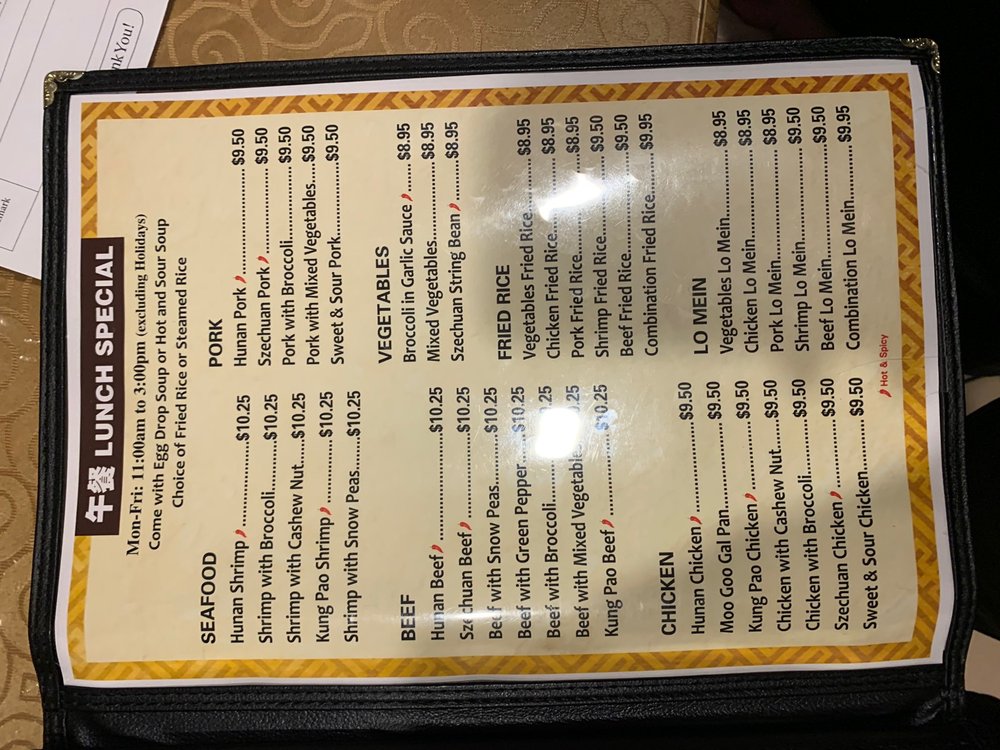 午餐 LUNCH SPECIAL
Mon-Fri: 11:00am to 3:00pm (excluding Holidays)
Come with Egg Drop Soup or Hot and Sour Soup
Choice of Fried Rice or Steamed Rice
SEAFOOD
Hunan Shrimp ........ $10.25
Shrimp with Broccoli ........ $10.25
Shrimp with Cashew Nut ........ $10.25
Kung Pao Shrimp ........ $10.25
Shrimp with Snow Peas ........ $10.25
BEEF
Hunan Beef ........ $10.25
Szechuan Beef ........ $10.25
Beef with Snow Peas ........ $10.25
Beef with Green Pepper ........ $10.25
Beef with Broccoli ........ $10.25
Beef with Mixed Vegetables ........ $10.25
Kung Pao Beef ........ $10.25
CHICKEN
Hunan Chicken ........ $9.50
Moo Goo Gal Pan ........ $9.50
Kung Pao Chicken ........ $9.50
Chicken with Cashew Nut ........ $9.50
Chicken with Broccoli ........ $9.50
Szechuan Chicken ........ $9.50
Sweet & Sour Chicken ........ $9.50
PORK
Hunan Pork ........ $9.50
Szechuan Pork ........ $9.50
Pork with Broccoli ........ $9.50
Pork with Mixed Vegetables ........ $9.50
Sweet & Sour Pork ........ $9.50
VEGETABLES
Broccoli in Garlic Sauce ........ $8.95
Mixed Vegetables ........ $8.95
Szechuan String Bean ........ $8.95
FRIED RICE
Vegetables Fried Rice ........ $8.95
Chicken Fried Rice ........ $8.95
Pork Fried Rice ........ $8.95
Shrimp Fried Rice ........ $9.50
Beef Fried Rice ........ $9.50
Combination Fried Rice ........ $9.95
LO MEIN
Vegetables Lo Mein ........ $8.95
Chicken Lo Mein ........ $8.95
Pork Lo Mein ........ $8.95
Shrimp Lo Mein ........ $9.50
Beef Lo Mein ........ $9.50
Combination Lo Mein ........ $9.95
Hot & Spicy